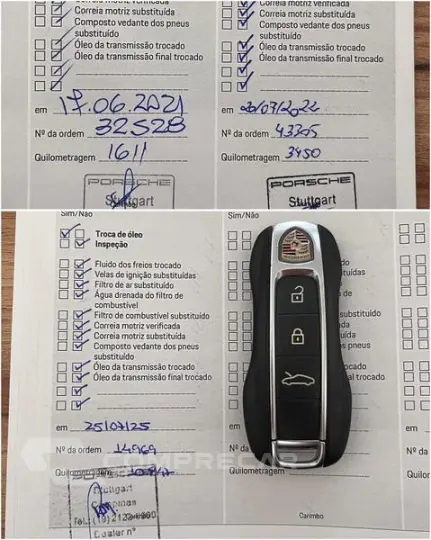 Correia motriz verificada
Correia motriz substituída
Composto vedante dos pneus
substituído
Óleo da transmissão trocado
Óleo da transmissão final trocado
em 17.06.2021
Nº da ordem 32528
Quilometragem 1611
PORSCHE
Stuttgart
Correia motriz verificada
Correia motriz substituída
Composto vedante dos pneus
substituído
Óleo da transmissão trocado
Óleo da transmissão final trocado
em 20/07/2022
Nº da ordem 43305
Quilometragem 3450
PORSCHE
Stuttgart
Sim/Não
Troca de óleo
Inspeção
Fluido dos freios trocado
Velas de ignição substituídas
Filtro de ar substituído
Água drenada do filtro de
combustível
Filtro de combustível substituído
Correia motriz verificada
Correia motriz substituída
Composto vedante dos pneus
substituído
Óleo da transmissão trocado
Óleo da transmissão final trocado
em 25/07/25
Nº da ordem
Quilometragem
PORSCHE
Stuttgart
Campinas
Dealer nº
Sim/Não
Nº da ordem
Quilometragem
Carimbo